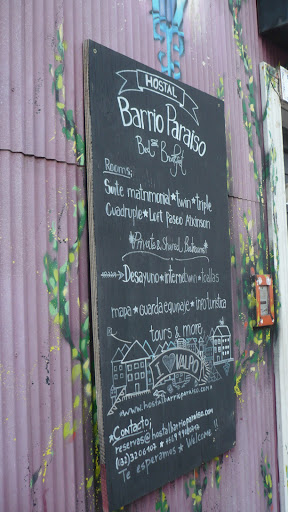 HOSTAL
Barrio Paraiso
Bed and Breakfast
Rooms:
Suite matrimonial * twin * triple
Cuadruple * Loft Paseo Atkinson
* Private & Shared Bathroom *
Desayuno * internet * toallas
mapa * guarda equipaje * info turística
tours & more
I ♥ VALPO
* www.hostalbarrioparaiso.com *
* Contacto:
reservas@hostalbarrioparaiso.com
(32)3206102 *
Te esperamos * Welcome !!